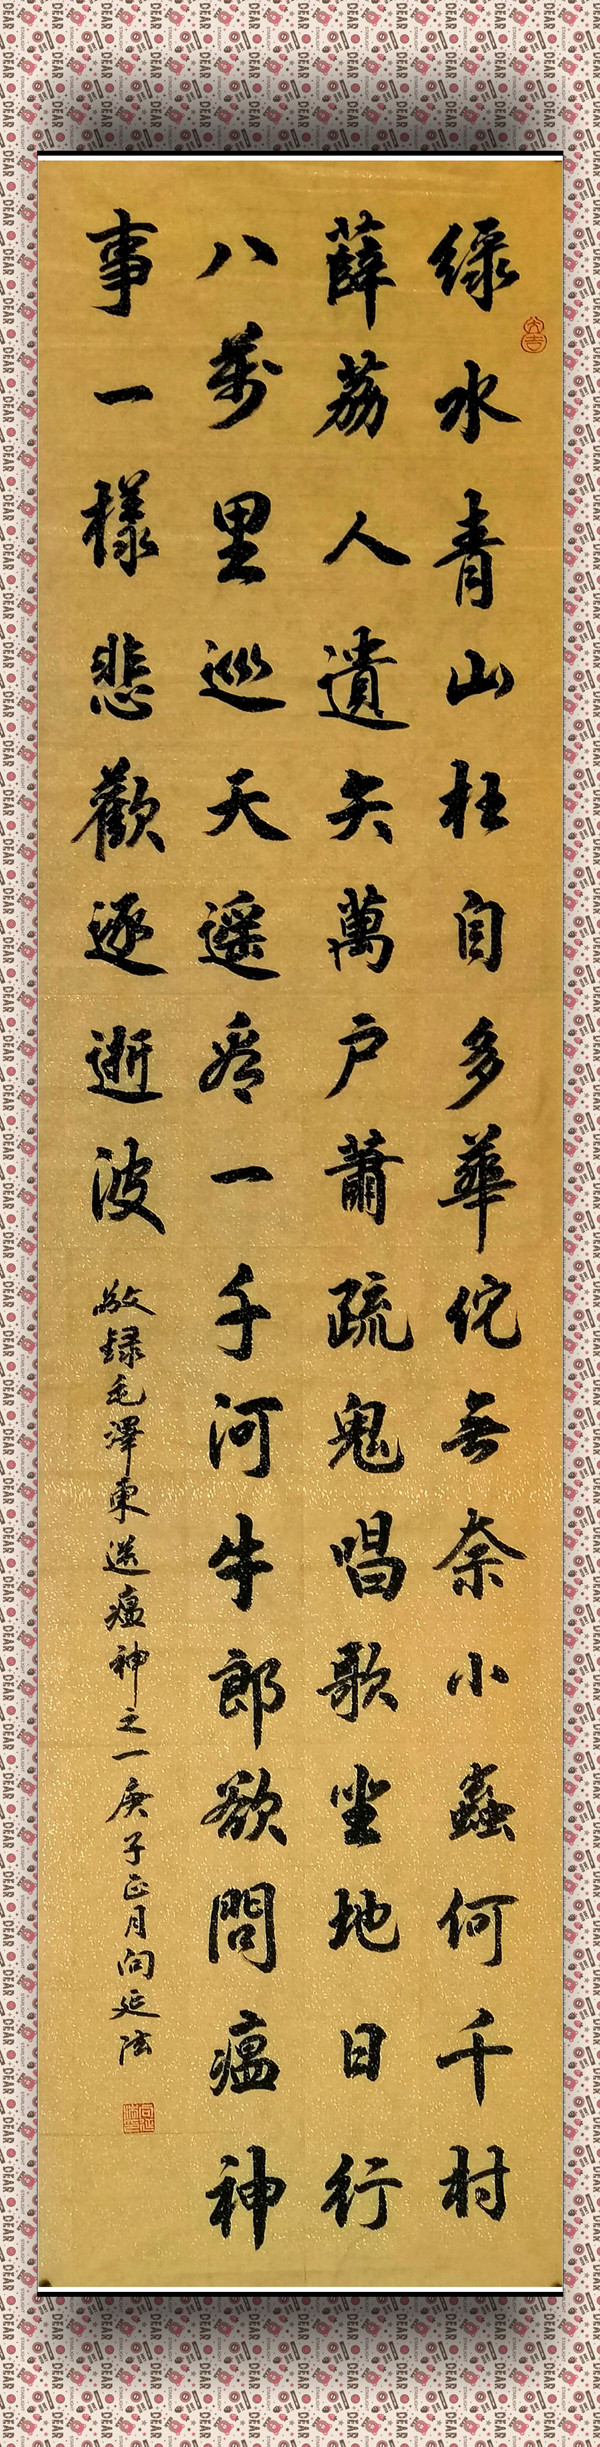 大吉
緑水青山枉自多華佗無奈小蟲何千村
薜荔人遺矢萬户蕭疏鬼唱歌坐地日行
八萬里巡天遥看一千河牛郎欲問瘟神
事一樣悲歡逐逝波
敬録毛澤東送瘟神之一庚子正月向延法
DEAR